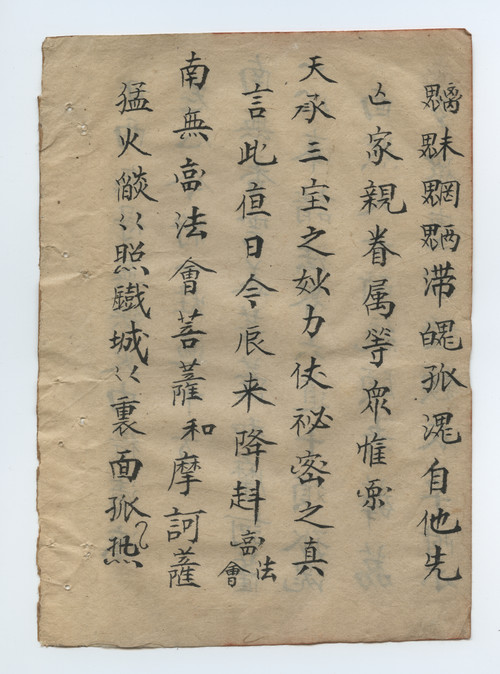 魑魅魍魎滞魄孤魂自他先
亡家親眷属等眾惟
天承三宝之妙力仗祕密之真
言此日今辰来降赴法會
南無法會菩薩和摩訶薩
猛火燄々照鐵城々裏面孤热